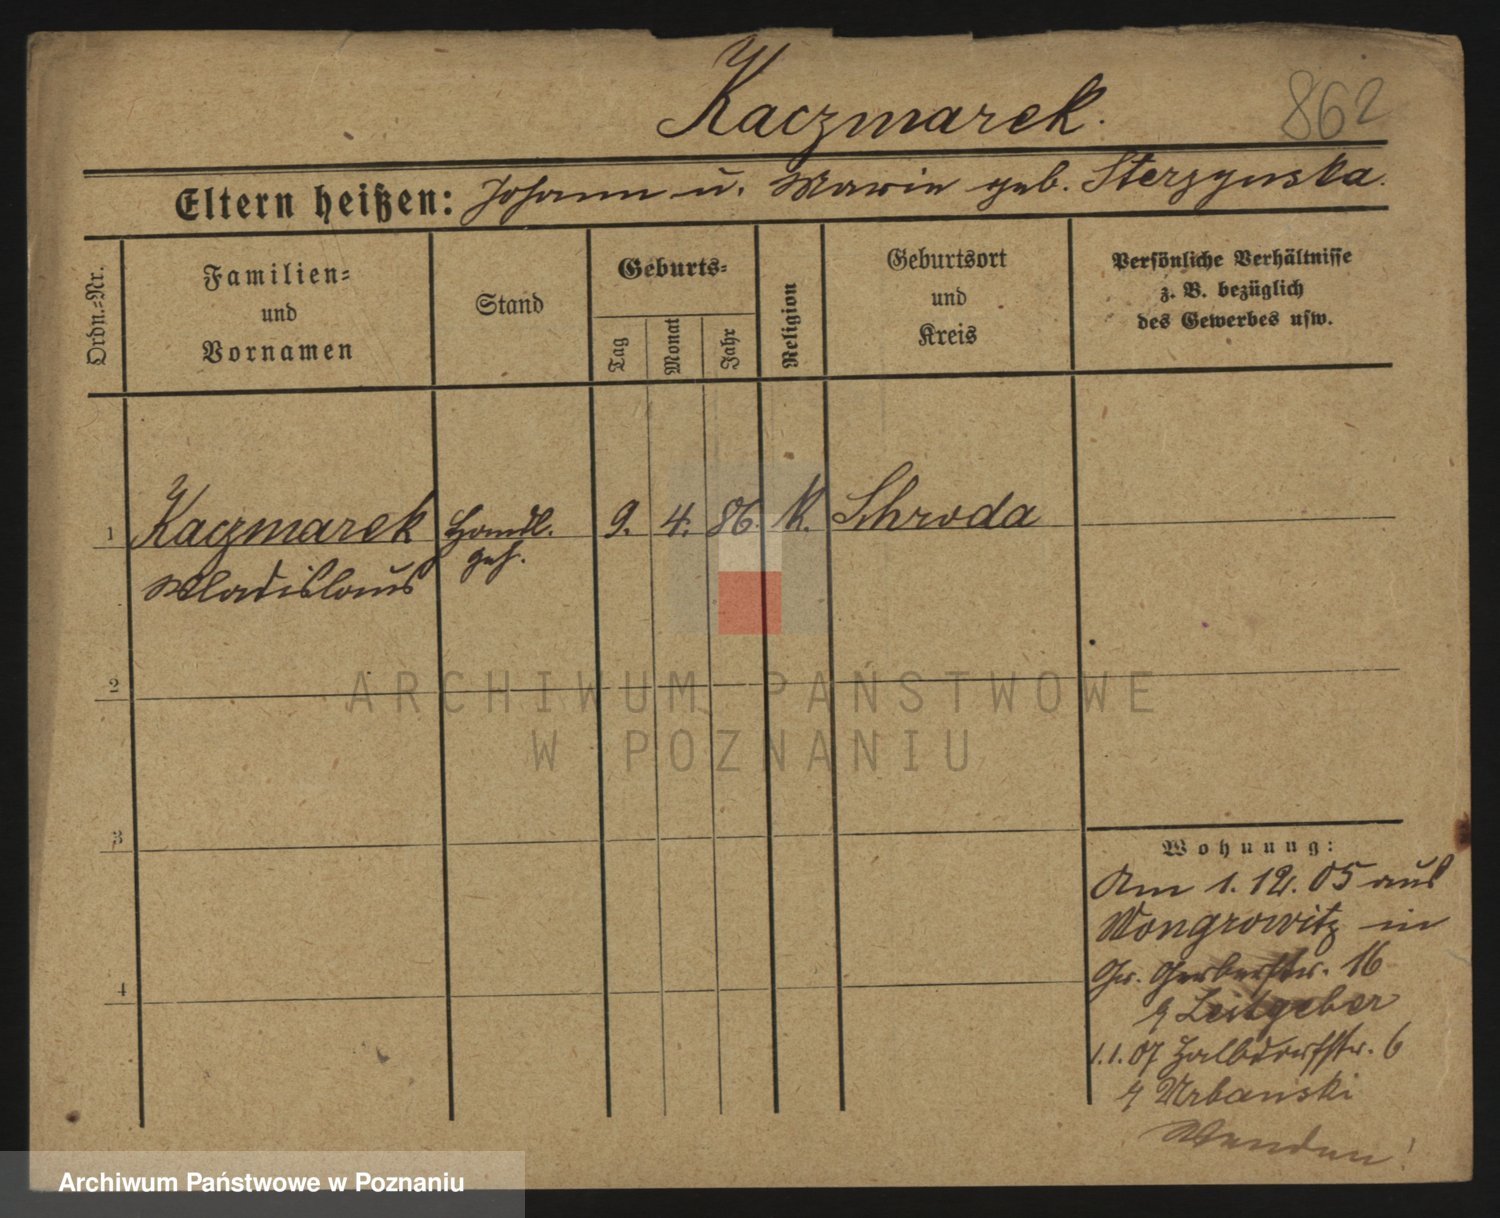 Kaczmarek.
862
Eltern heißen: Johann u. Marie geb. Sterzynska.
Ordn.-Nr.
Familien-
und
Vornamen
Stand
Geburts-
Tag
Monat
Jahr
Religion
Geburtsort
und
Kreis
Persönliche Verhältnisse
z. B. bezüglich
des Gewerbes usw.
1 Kaczmarek Handl. 9. 4. 86. K. Schroda
Wladislaus geh.
2
3
4
ARCHIWUM PAŃSTWOWE
W POZNANIU
Wohnung:
Am 1. 12. 05 aus
Wongrowitz in
Gr. Gerberstr. 16
Leitgeber
1.1.07 Halbdorfstr. 6
Urbanski
Wenden!
Archiwum Państwowe w Poznaniu